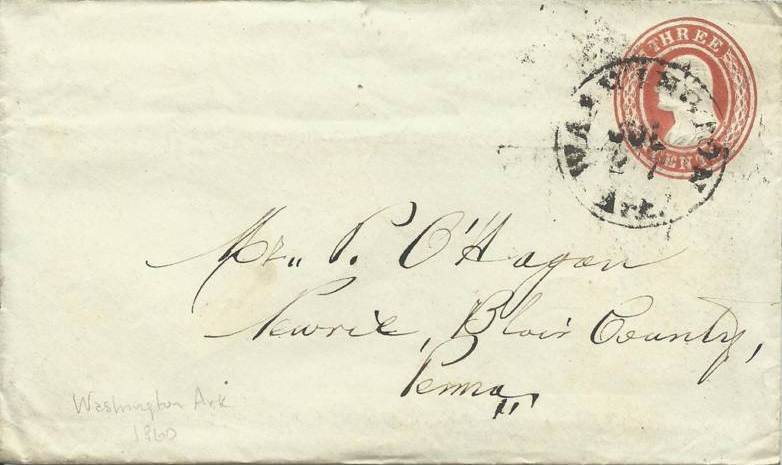 THREE
CENTS
WASHINGTON
JUL
Ark.
Mr. P. O'Hagan
Newrie, Blair County,
Penna,,
Washington Ark
1860